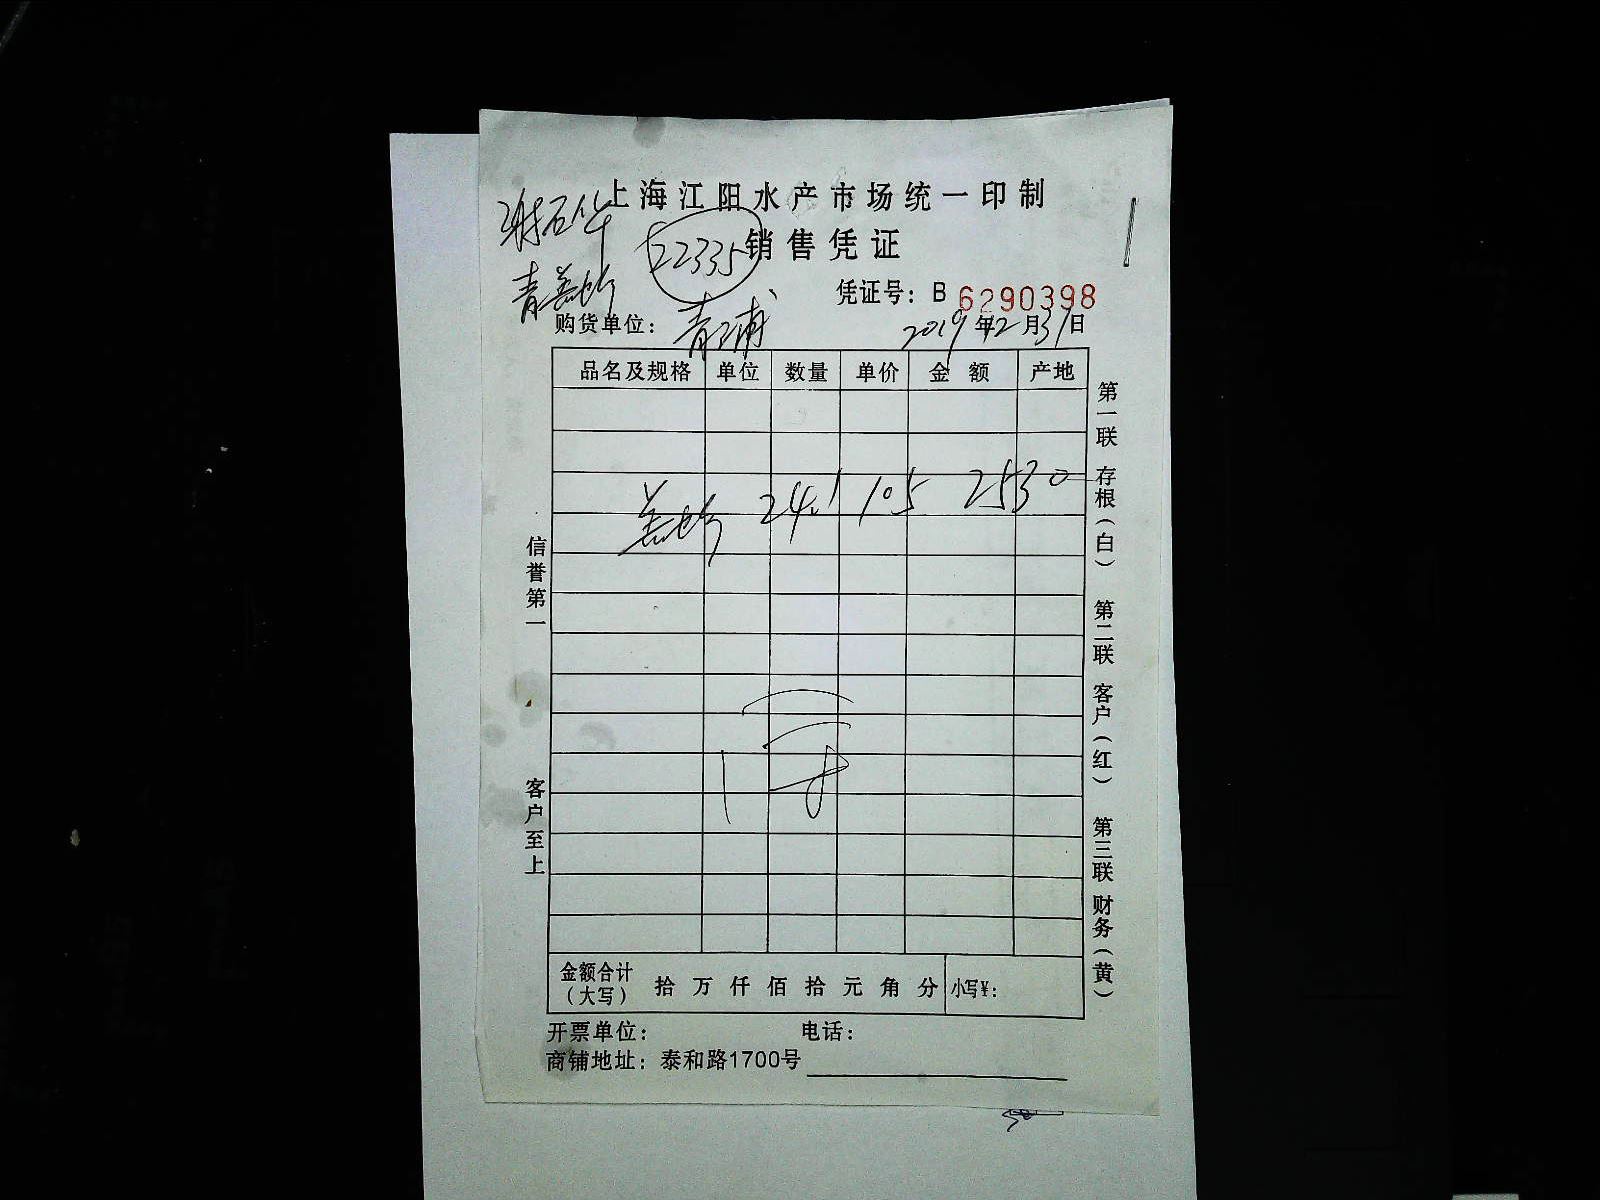 上海江阳水产市场统一印制
谢石华
22335
销售凭证
凭证号：B 6290398
购货单位：青浦
2019年12月31日
品名及规格 单位 数量 单价 金额 产地
24.1 105 2530
信誉第一
客户至上
第一联 存根（白） 第二联 客户（红） 第三联 财务（黄）
金额合计（大写） 拾 万 仟 佰 拾 元 角 分 小写￥：
开票单位： 电话：
商铺地址：泰和路1700号